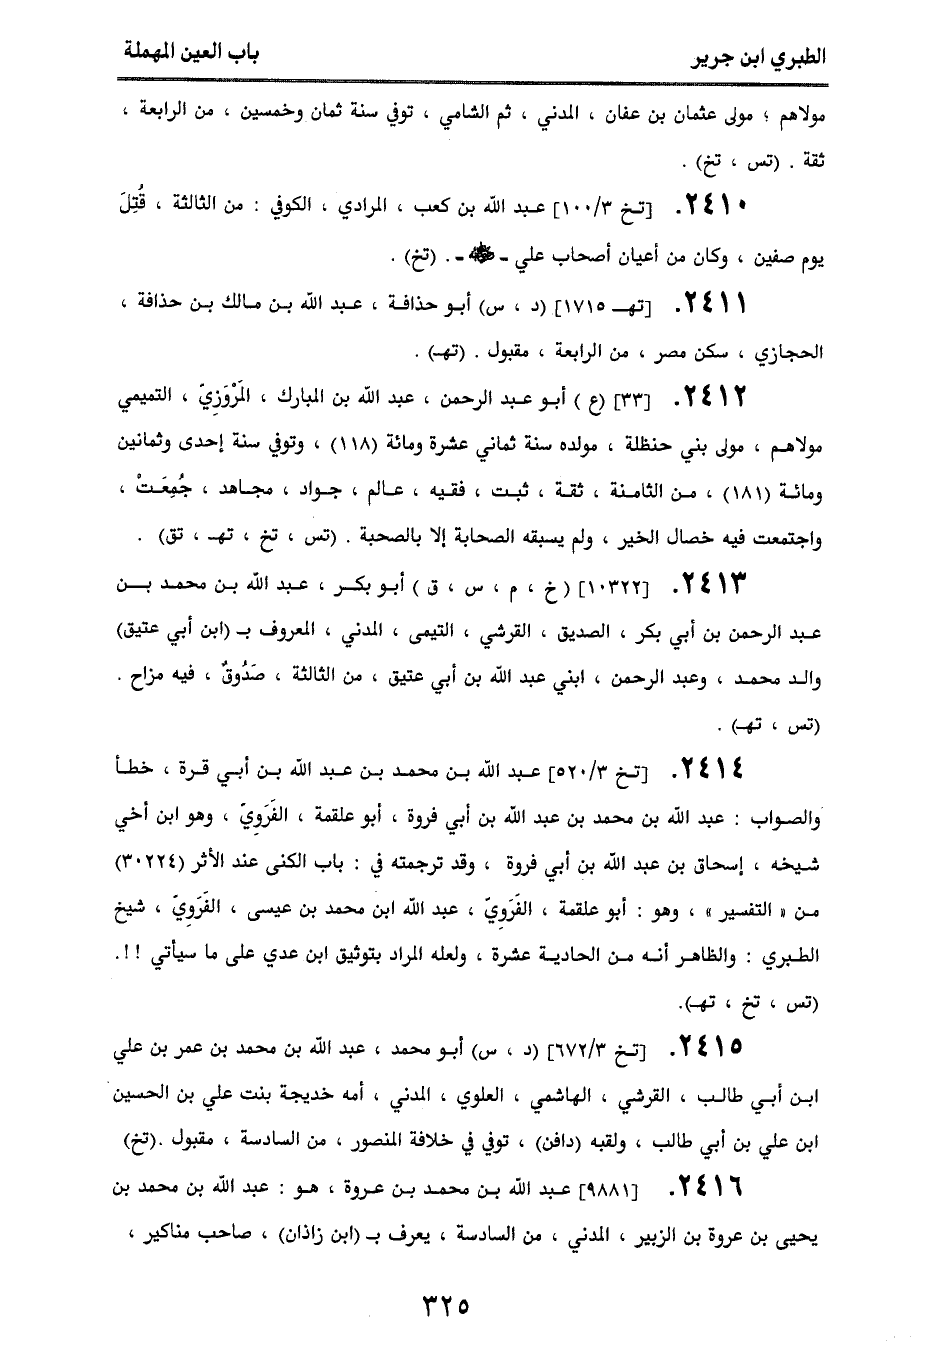 الطبري ابن جرير
باب العين المهملة
مولاهم ؛ مولى عثمان بن عفان ، المدني ، ثم الشامي ، توفي سنة ثمان وخمسين ، من الرابعة ،
ثقة . (تس ، تخ) .
٢٤١٠. [تـخ ١٠٠/٣] عبد الله بن كعب ، المرادي ، الكوفي : من الثالثة ، قُتِلَ
يوم صفين ، وكان من أعيان أصحاب علي - - . (تخ) .
٢٤١١. [تهـ ١٧١٥] (د ، س) أبـو حذافـة ، عـبد الله بـن مـالك بـن حذافة ،
الحجازي ، سكن مصر ، من الرابعة ، مقبول . (تهـ) .
٢٤١٢. [٣٣] (ع ) أبـو عـبد الرحمن ، عبد الله بن المبارك ، المَرْوَزِيّ ، التميمي
مولاهـم ، مولى بني حنظلة ، مولده سنة ثماني عشرة ومائة (١١٨) ، وتوفي سنة إحدى وثمانين
ومائـة (١٨١) ، مـن الثامنـة ، ثقـة ، ثبـت ، فقـيه ، عـالم ، جـواد ، مجـاهد ، جُمِعَـتْ ،
واجتمعت فيه خصال الخير ، ولم يسبقه الصحابة إلا بالصحبة . (تس ، تخ ، تهـ ، تق) .
٢٤١٣. [١٠٣٢٢] ( خ ، م ، س ، ق ) أبـو بكـر ، عـبد الله بـن محمـد بـــن
عـبد الرحمن بن أبي بكر ، الصديق ، القرشي ، التيمى ، المدني ، المعروف بـ (ابن أبي عتيق)
والـد محمـد ، وعبد الرحمن ، ابني عبد الله بن أبي عتيق ، من الثالثة ، صَدُوقٌ ، فيه مزاح .
(تس ، تهـ) .
٢٤١٤. [تـخ ٥٢٠/٣] عبـد الله بـن محمد بـن عـبد الله بـن أبـي قـرة ، خطـأ
والصـواب : عبد الله بن محمد بن عبد الله بن أبي فروة ، أبو علقمة ، الفَرَوِيّ ، وهو ابن أخي
شـيخه ، إسحاق بن عبد الله بن أبي فروة ، وقد ترجمته في : باب الكنى عند الأثر (٣٠٢٢٤)
مـن « التفسير » ، وهو : أبو علقمة ، الفَرَوِيّ ، عبد الله ابن محمد بن عيسى ، الفَرَوِيّ ، شيخ
الطبري : والظاهـر أنـه مـن الحاديـة عشرة ، ولعله المراد بتوثيق ابن عدي على ما سيأتي !!.
(تس ، تخ ، تهـ).
٢٤١٥. [تـخ ٦٧٢/٣] (د ، س) أبـو محمد ، عبد الله بن محمد بن عمر بن علي
ابـن أبـي طالـب ، القرشي ، الهاشمي ، العلوي ، المدني ، أمه خديجة بنت علي بن الحسين
ابن علي بن أبي طالب ، ولقبه (دافن) ، توفي في خلافة المنصور ، من السادسة ، مقبول .(تخ)
٢٤١٦. [٩٨٨١] عـبد الله بـن محمـد بـن عـروة ، هـو : عبد الله بن محمد بن
يحيى بن عروة بن الزبير ، المدني ، من السادسة ، يعرف بـ (ابن زاذان) ، صاحب مناكير ،
٣٢٥